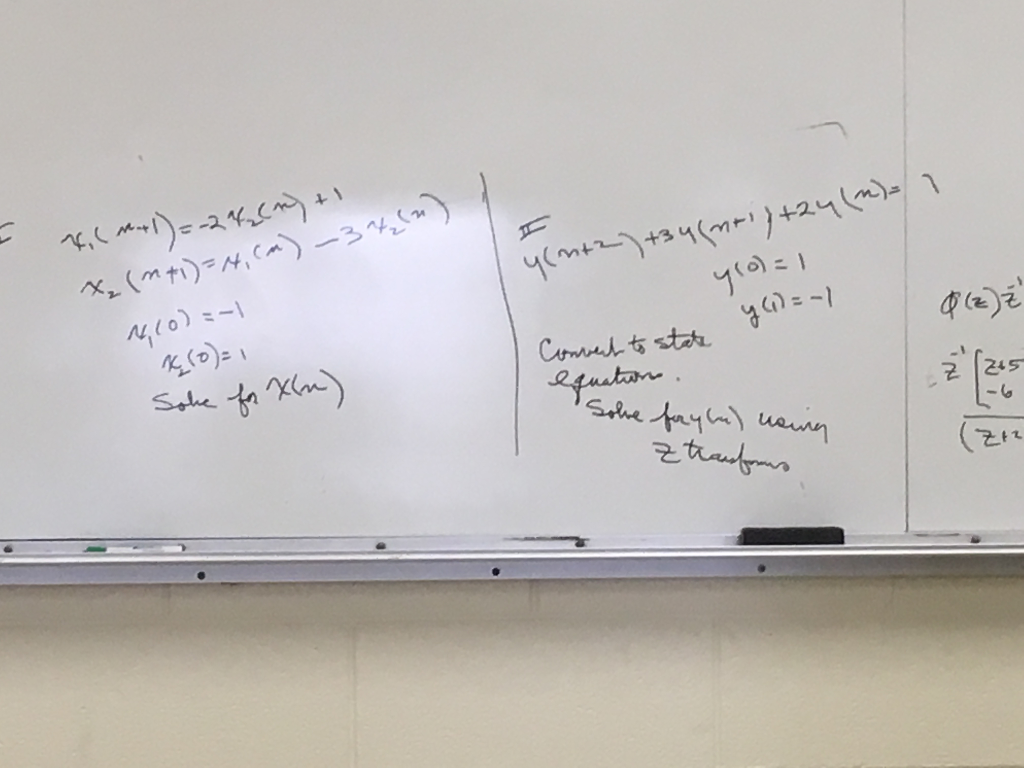 I
x₁(n+1)=-2x₂(n)+1
x₂(n+1)=x₁(n)-3x₂(n)
x₁(0)=-1
x₂(0)=1
Solve for X(n)
II
y(n+2)+3y(n+1)+2y(n)=1
y(0)=1
y(1)=-1
Convert to state
equation.
Solve for y(n) using
Z transforms
Φ(z)z⁻¹
z⁻¹[z+5
-6
(z+2